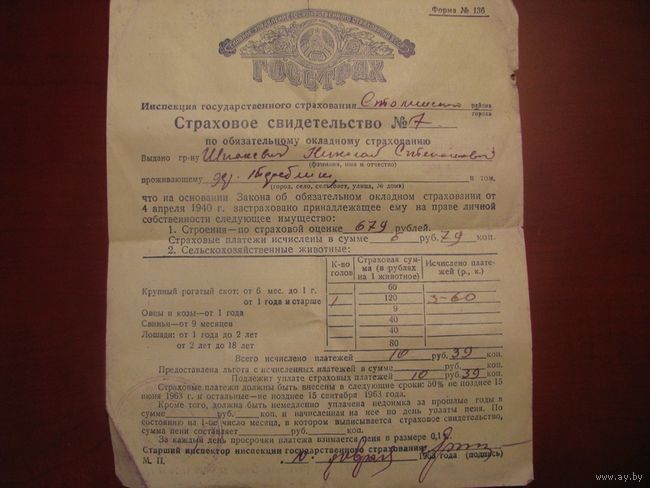 Форма № 136
ГЛАВНОЕ УПРАВЛЕНИЕ ГОСУДАРСТВЕННОГО СТРАХОВАНИЯ
ГОССТРАХ
Инспекция государственного страхования Столинского района
города
Страховое свидетельство № 7
по обязательному окладному страхованию
Выдано гр-ну Николай Степанович
(фамилия, имя и отчество)
проживающему в том,
(город, село, сельсовет, улица, № дома)
что на основании Закона об обязательном окладном страховании от
4 апреля 1940 г. застраховано принадлежащее ему на праве личной
собственности следующее имущество:
1. Строения—по страховой оценке 679 рублей.
Страховые платежи исчислены в сумме 6 руб. 79 коп.
2. Сельскохозяйственные животные:
К-во голов Страховая сумма (в рублях на 1 животное) Исчислено платежей (р., к.)
Крупный рогатый скот: от 6 мес. до 1 г. 60
от 1 года и старше 1 120 3-60
Овцы и козы—от 1 года 9
Свиньи—от 9 месяцев 40
Лошади: от 1 года до 2 лет 40
от 2 лет до 18 лет 80
Всего исчислено платежей 10 руб. 39 коп.
Предоставлена льгота с исчисленных платежей в сумме руб. коп.
Подлежит уплате страховых платежей 10 руб. 39 коп.
Страховые платежи должны быть внесены в следующие сроки: 50% не позднее 15
июня 1963 г. и остальные—не позднее 15 сентября 1963 года.
Кроме того, должна быть немедленно уплачена недоимка за прошлые годы в
сумме руб. коп. и начисленная на нее по день уплаты пеня. По
состоянию на 1-ое число месяца, в котором выписывается страховое свидетельство,
сумма пени составляет руб. коп.
За каждый день просрочки платежа взимается пеня в размере 0,1%.
Старший инспектор инспекции государственного страхования
М. П. 10 февраля 1963 года (подпись)
www.ay.by